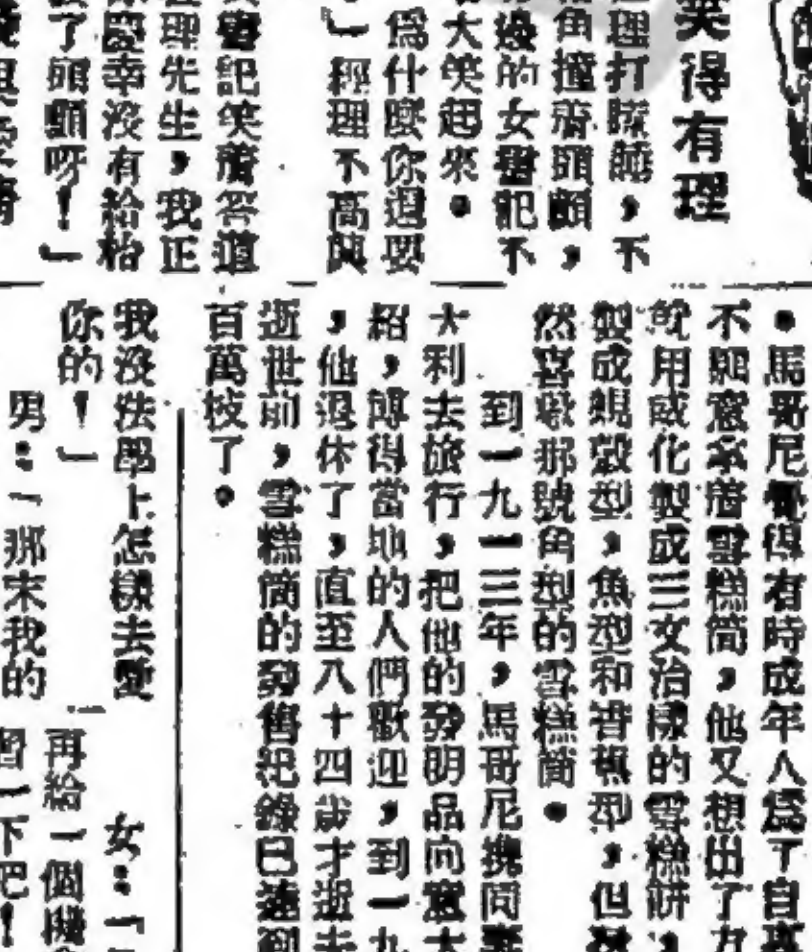 笑得有理
理打瞌睡，不
角撞着頭顱，
邊的女書記不
大笑起來。
爲什麽你還要
」經理不高興
書記笑着答道
理先生，我正
慶幸沒有給枱
了頭顱呀！」
•馬哥尼覺得有時成年人爲了自
不願意拿着雪糕筒，他又想出了
說用威化製成三文治樣的雪糕餅，
製成蜆殼型，魚型和香蕉型，但
然喜歡那號角型的雪糕筒。
到一九一三年，馬哥尼携同妻
大利去旅行，把他的發明品向意大
紹，博得當地的人們歡迎，到一九
，他退休了，直至八十四歲才逝去
逝世前，雪糕筒的發售紀錄已達到
百萬枝了。
我沒法學上怎樣去愛
你的！」
男：「那末我的
女：「
再給一個機
習一下吧！